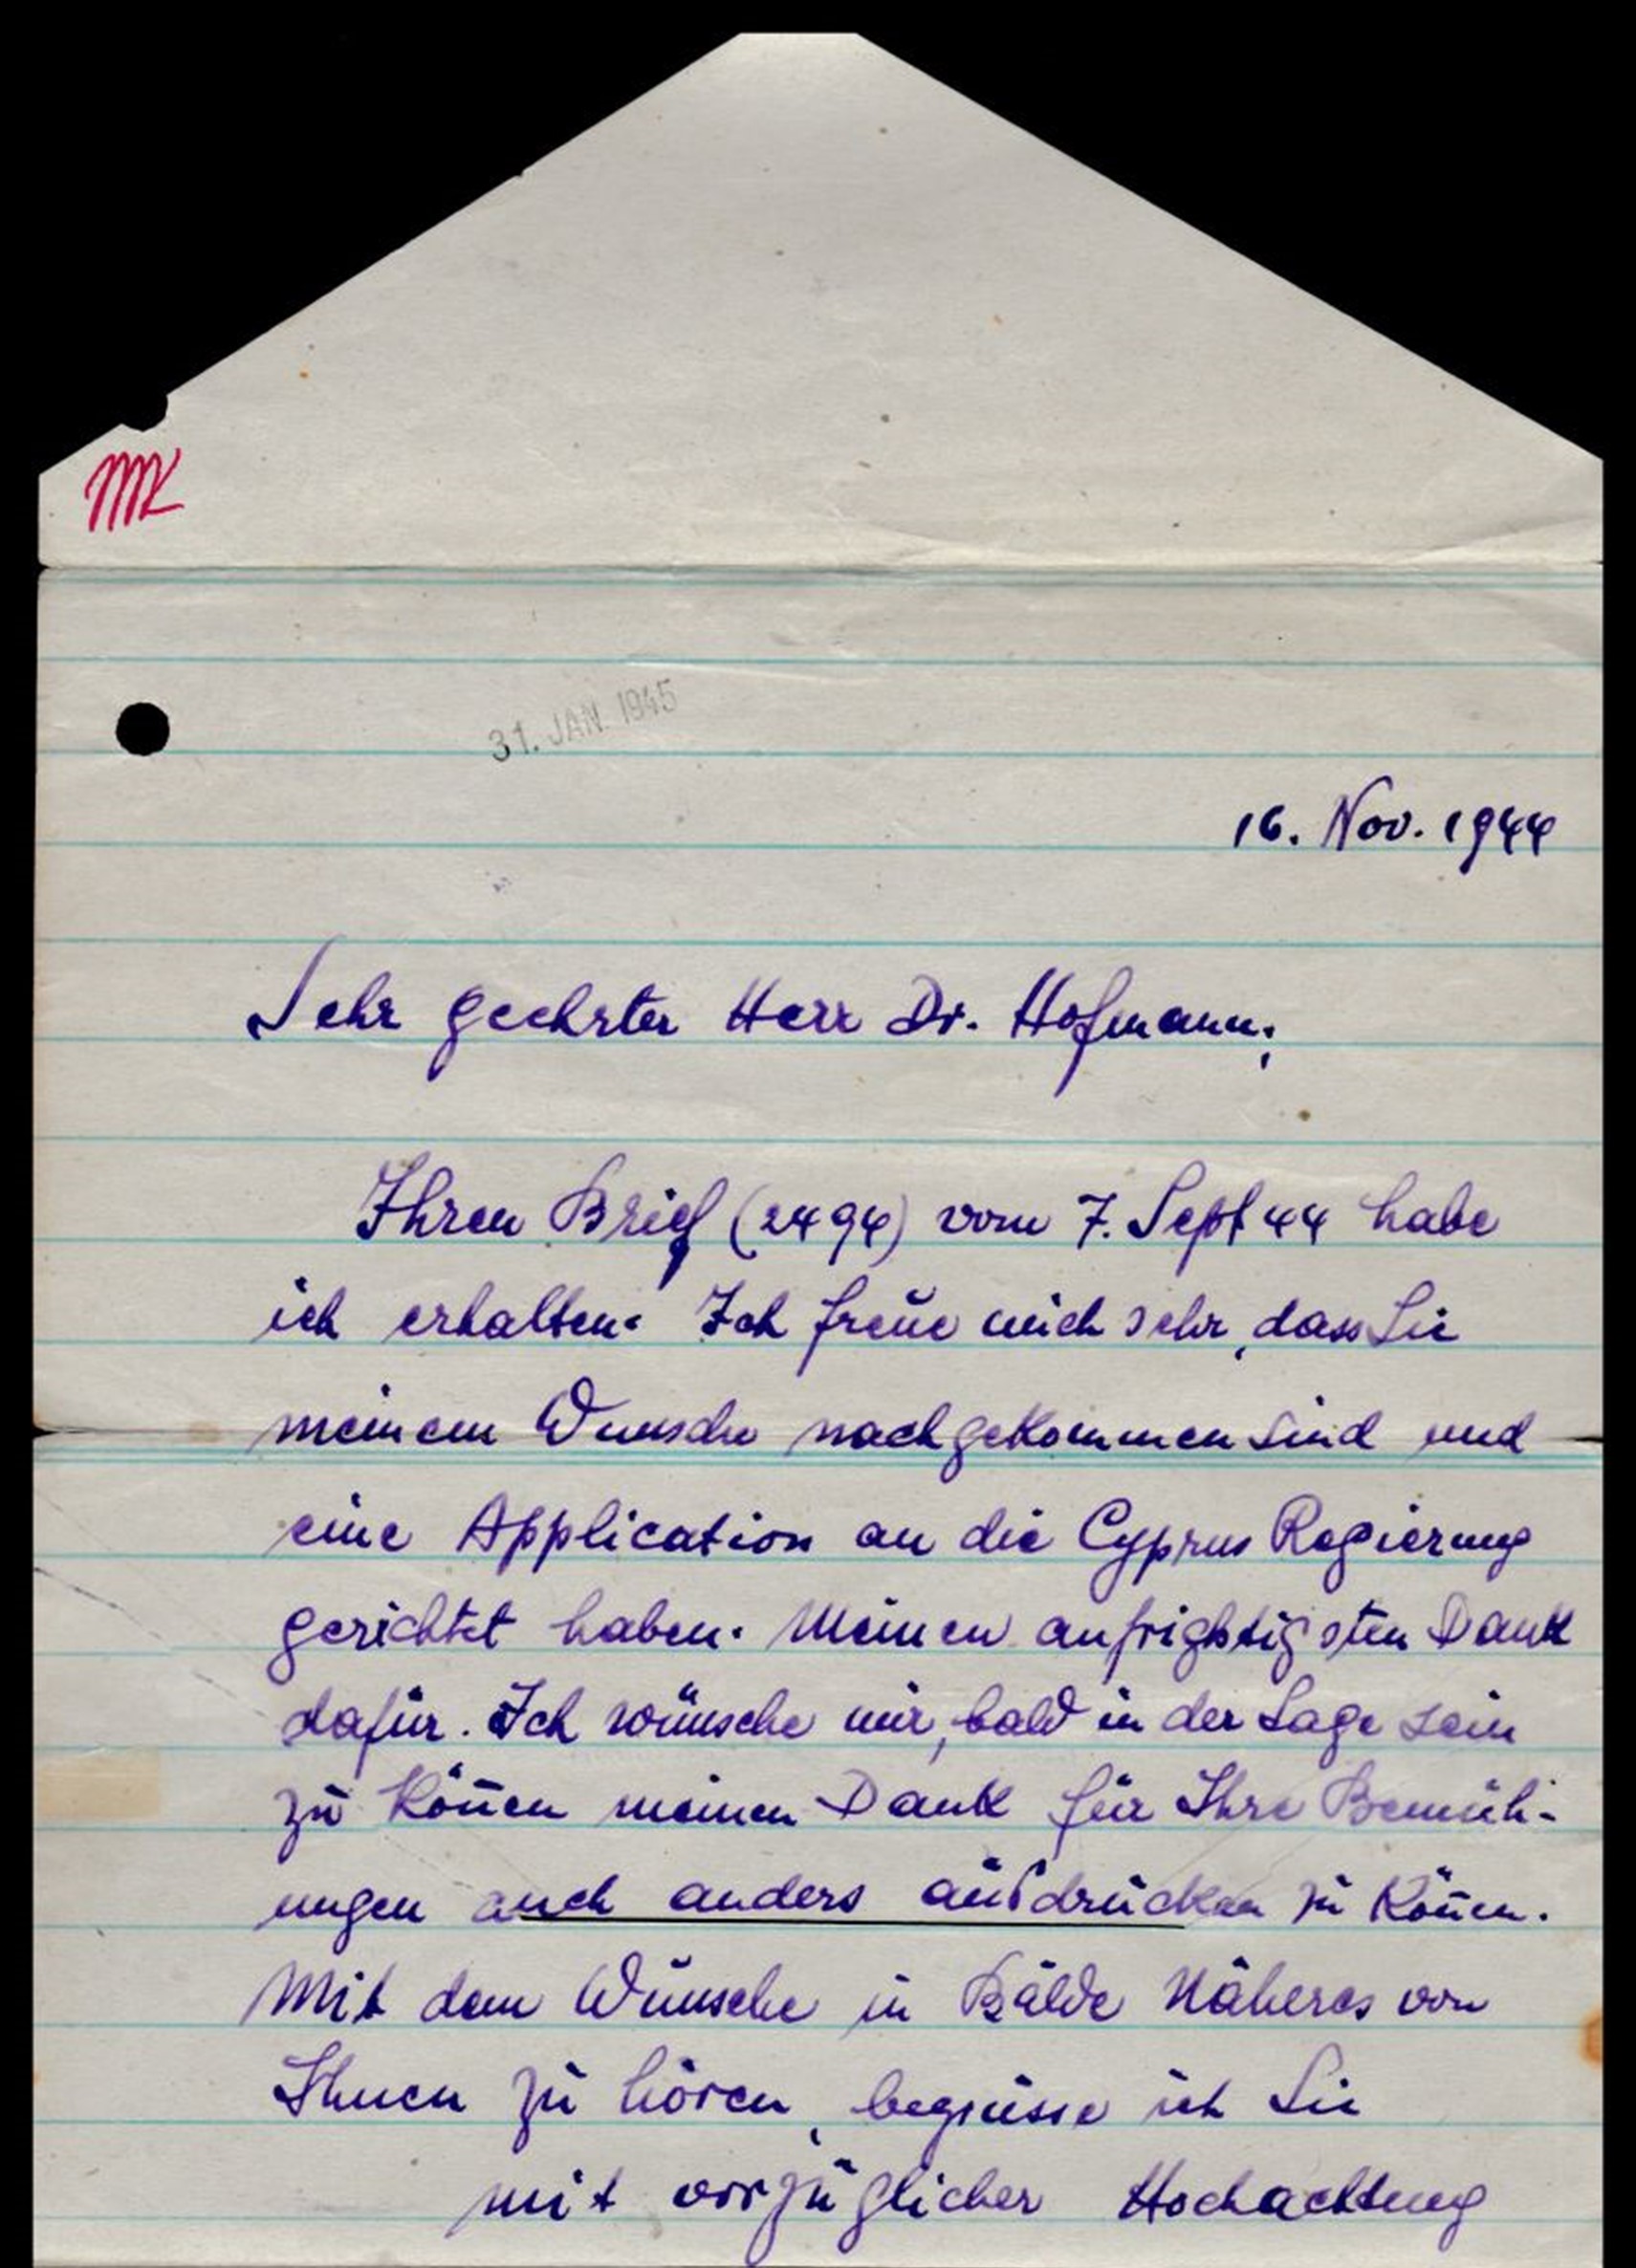 MK
31. JAN. 1945
16. Nov. 1944
Sehr geehrter Herr Dr. Hofmann;
Ihren Brief (2494) vom 7. Sept 44 habe
ich erhalten. Ich freue mich sehr, dass Sie
meinem Wunsche nachgekommen sind und
eine Application an die Cyprus Regierung
gerichtet haben. Meinen aufrichtigsten Dank
dafür. Ich wünsche mir, bald in der Lage sein
zu kön̄en meinen Dank für Ihre Bemüh-
ungen auch anders ausdrücken zu kön̄en.
Mit dem Wunsche in Bälde Näheres von
Ihnen zu hören, begrüsse ich Sie
mit vorzüglicher Hochachtung